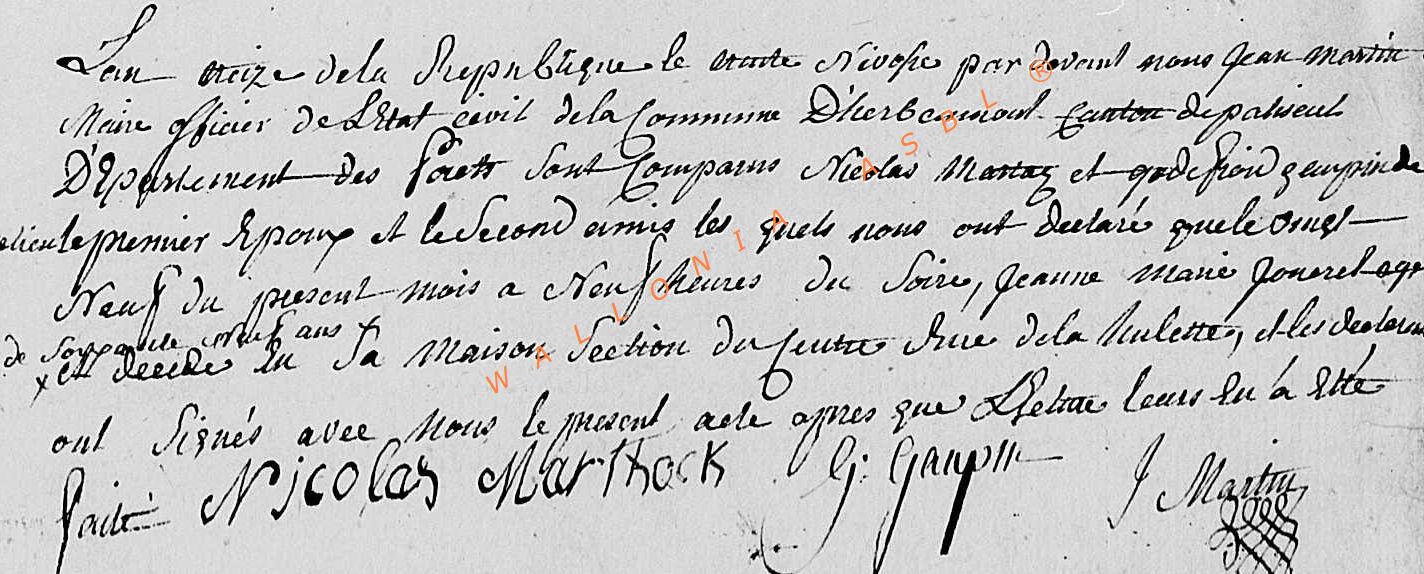 L'an treize de la Republique le trente Nivose par devant nous Jean Martin
Maire officier de L'Etat civil de la Commune D'herbeumont Canton de paliseul
Département des forets sont Comparus Nicolas Martaq et godefroid gaupin de
ce lieu le premier Epoux et le Second amis les quels nous ont declaré que le vingt
Neuf du present mois a Neuf heures du Soire, Jeanne Marie Joneret agé
de Soixante neuf ans x
x est decedé En Sa Maison Section du Centre Rue de la hulette, et les declarans
ont Signés avec Nous le present acte apres que Lecture leurs En á Etté
faite Nicolas Marthock G: Gaupin J Martin
WALLONIA ASBL ®